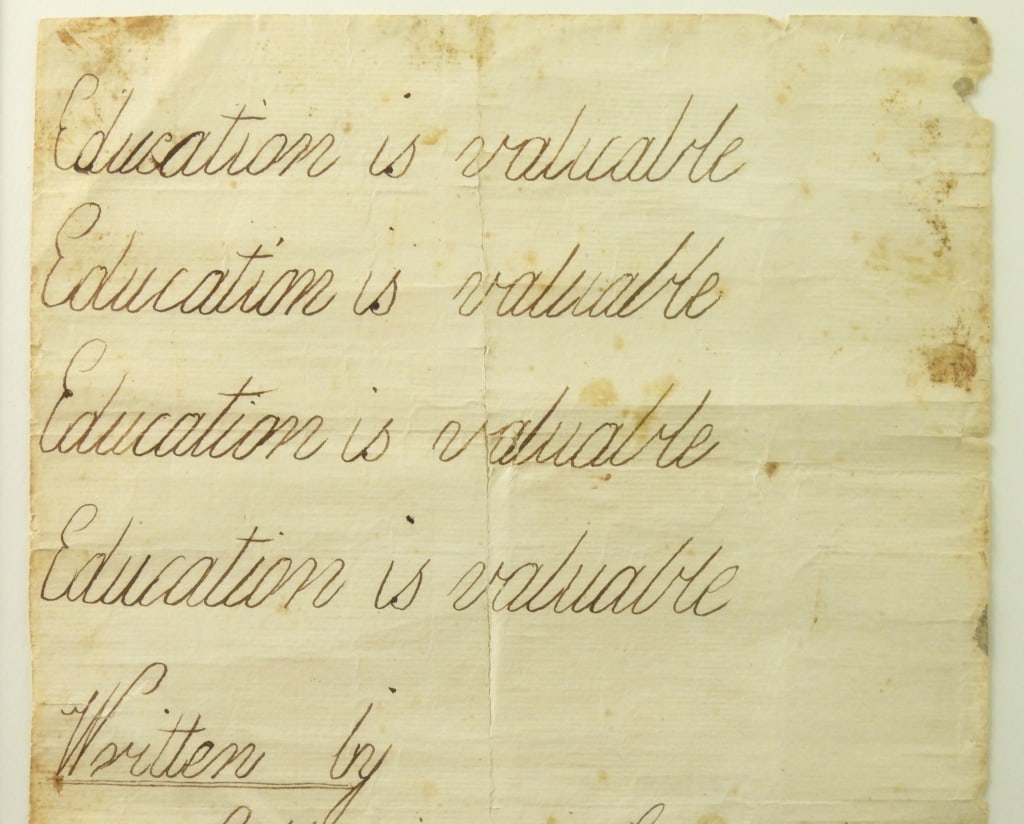 Education is valuable
Education is valuable
Education is valuable
Education is valuable
Written by